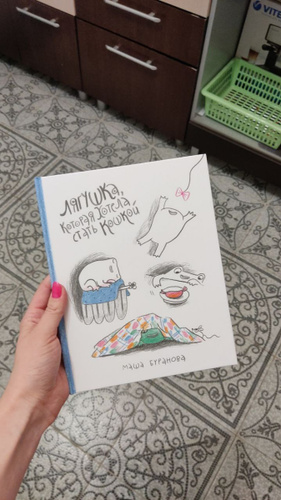 VITE
Лягушка,
которая хотела
стать кошкой
маша буранова